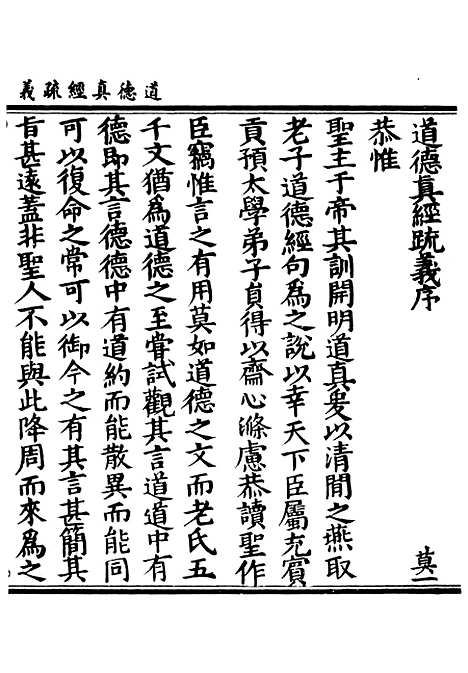 道德真經疏義
道德真經疏義序
莫一
恭惟
聖主于帝其訓開明道真爰以清閒之燕取
老子道德經句爲之說以幸天下臣屬充賓
貢預太學弟子員得以齋心滌慮恭讀聖作
臣竊惟言之有用莫如道德之文而老氏五
千文猶爲道德之至嘗試觀其言道道中有
德即其言德德中有道約而能散異而能同
可以復命之常可以御今之有其言甚簡其
旨甚遠蓋非聖人不能與此降周而來爲之